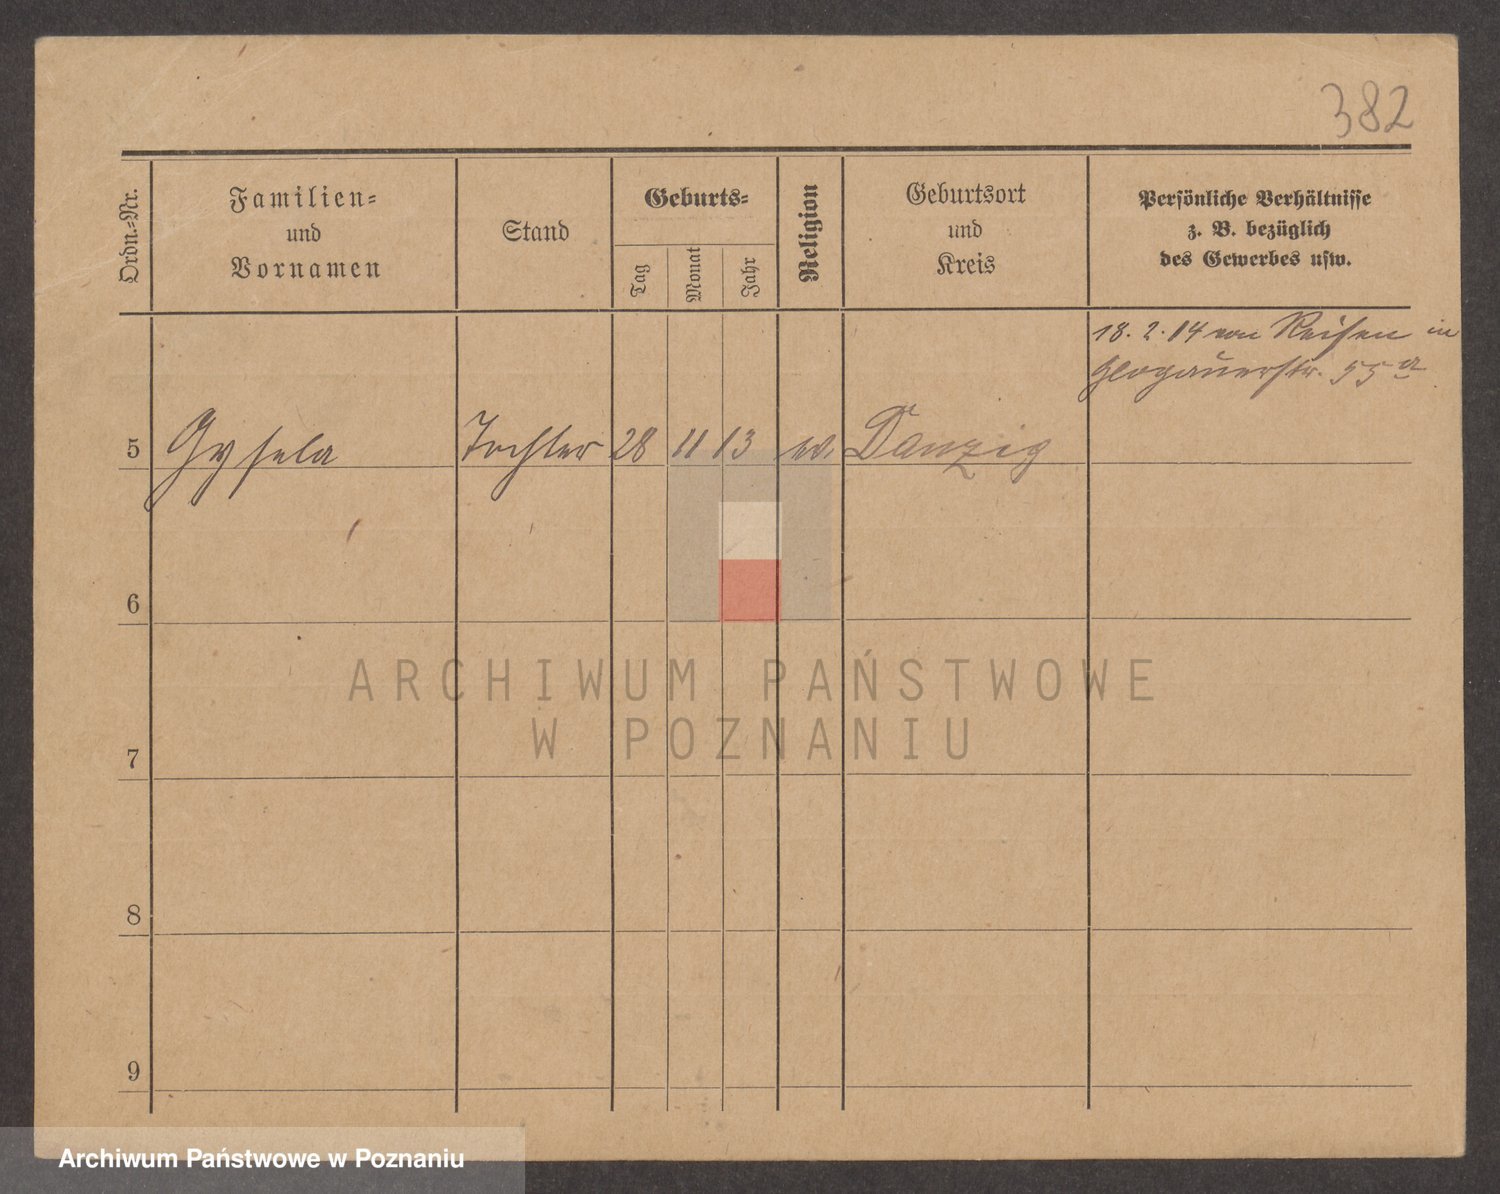 382
Ordn.-Nr.
Familien-
und
Vornamen
Stand
Geburts-
Tag
Monat
Jahr
Religion
Geburtsort
und
Kreis
Persönliche Verhältnisse
z. B. bezüglich
des Gewerbes usw.
18. 2. 14 von Reisen in
Glogauerstr. 55a
5 Gysela Tochter 28 11 13 Danzig
6
ARCHIWUM PAŃSTWOWE
W POZNANIU
7
8
9
Archiwum Państwowe w Poznaniu